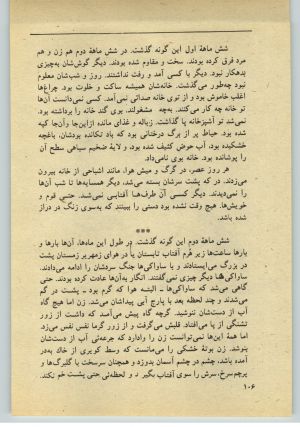 شش ماههٔ اول این گونه گذشت. در شش ماههٔ دوم هم زن و هم
مرد فرق کرده بودند. سخت و مقاوم شده بودند. دیگر گوش‌شان به‌چیزی
بدهکار نبود. دیگر با کسی آمد و رفت نداشتند. روز و شب‌شان معلوم
نبود چه‌طور می‌گذشت. خانه‌شان همیشه ساکت و خلوت بود. چراغ‌ها
اغلب خاموش بود و از توی خانه صدائی نمی‌آمد. کسی نمی‌دانست آن‌ها
تو خانه چه کار می‌کنند. به‌چه مشغولند. بوی گند خانه را برداشته بود.
نمی‌شد تو آشپزخانه پا گذاشت. زباله و غذای مانده از این‌جا و آن‌جا کپه
شده بود. حیاط پر از برگ درختانی بود که باد تکانده بودشان، باغچه
خشکیده بود، آب حوض کثیف شده بود، و لایهٔ ضخیم سیاهی سطح آن
را پوشانده بود. خانه بوی نامی‌داد.
هر روز عصر، در گرگ و میش هوا، مانند اشباحی از خانه بیرون
می‌زدند. در که پشت سرشان بسته می‌شد، دیگر همسایه‌ها تا شب آن‌ها
را نمی‌دیدند. دیگر کسی آن طرف‌ها آفتابی نمی‌شد. حتی قوم و
خویش‌ها. هیچ وقت نشده بود دستی را ببینند که به‌سوی زنگ در دراز
شده باشد.
***
شش ماههٔ دوم این گونه گذشت. در طول این ماه‌ها، آن‌ها بارها و
بارها ساعت‌ها زیر هرم آفتاب تابستان یا در هوای زمهریر زمستان پشت
در بزرگ می‌ایستادند و با ساواکی‌ها جنگ سردشان را ادامه می‌دادند.
ساواکی‌ها دیگر چیزی نمی‌گفتند. انگار به‌آن‌ها عادت کرده بودند. حتی
گاهی می‌شد که ساواکی‌ها - البته هوا که گرم بود - پشت در گم
می‌شدند و چند لحظه بعد با پارچ آبی پیداشان می‌شد. زن اما هیچ گاه
آب از دست‌شان ننوشید. گرچه گاه پیش می‌آمد که داشت از زور
تشنگی از پا می‌افتاد. قلبش می‌گرفت و از زور گرما نفس نفس می‌زد.
اما همهٔ این‌ها نمی‌توانست زن را وادارد که جرعه‌ئی آب از دست‌شان
بنوشد. زن بوتهٔ خشکی را می‌مانست که وسط کویری از خاک به‌در
آمده باشد، چشم در چشم آسمان بدوزد و همچنان سرسخت با گلبرگ‌ها و
پرچم سرخ، سرش را سوی آفتاب بگیرد و لحظه‌ئی حتی پشت خم نکند.
۱۰۶